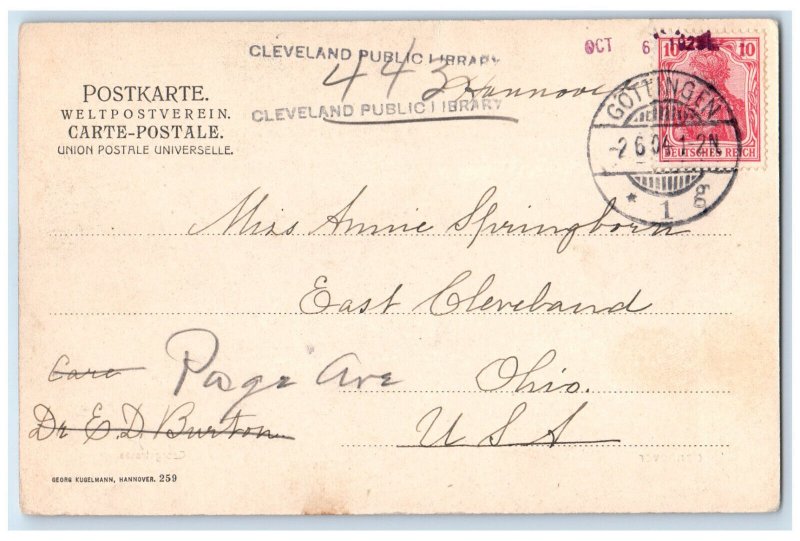 CLEVELAND PUBLIC LIBRARY
OCT 6
10 10
443 Hannover
POSTKARTE.
WELTPOSTVEREIN.
CARTE-POSTALE.
UNION POSTALE UNIVERSELLE.
CLEVELAND PUBLIC LIBRARY
GÖTTINGEN
-2 6.04.1-2N
* 1 g
DEUTSCHES REICH
Miss Annie Springborn
East Cleveland
Care Page Ave Ohio.
Dr E. D. Burton U S A
GEORG KUGELMANN, HANNOVER. 259